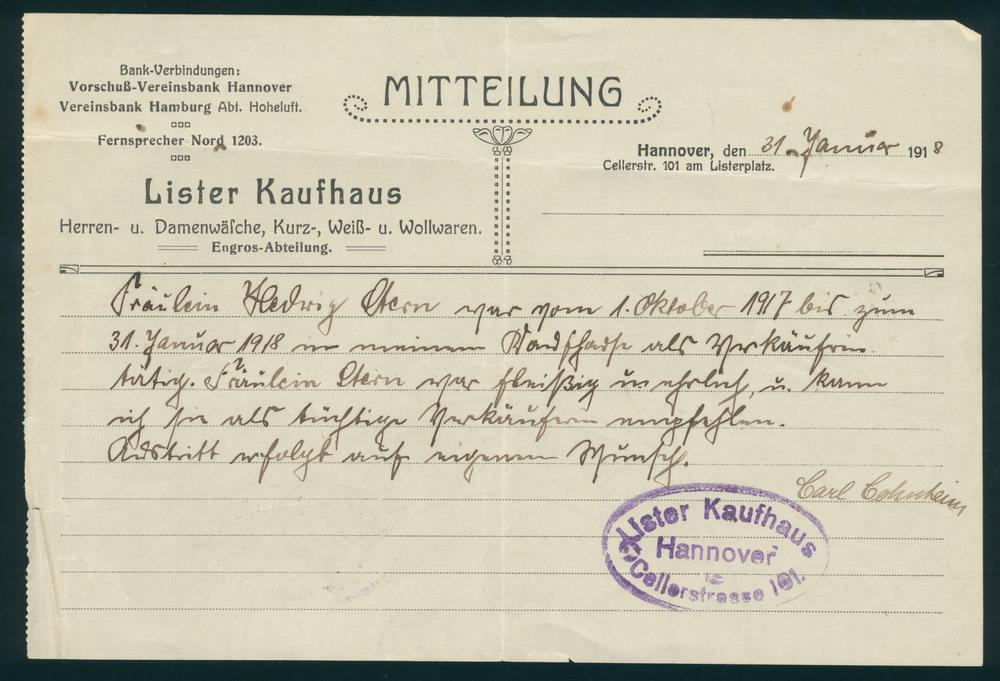 Bank-Verbindungen:
Vorschuß-Vereinsbank Hannover
Vereinsbank Hamburg Abt. Hoheluft.
Fernsprecher Nord 1203.
MITTEILUNG
Hannover, den 31. Januar 1918
Cellerstr. 101 am Listerplatz.
Lister Kaufhaus
Herren- u. Damenwäſche, Kurz-, Weiß- u. Wollwaren.
Engros-Abteilung.
Fräulein Hedwig Stern war vom 1. Oktober 1917 bis zum
31. Januar 1918 in meinem Kaufhause als Verkäuferin
tätig. Fräulein Stern war fleißig u. ehrlich, u. kann
ich sie als tüchtige Verkäuferin empfehlen.
Austritt erfolgt auf eigenen Wunsch.
Carl Cohnheim
Lister Kaufhaus
Hannover
Cellerstrasse 101.